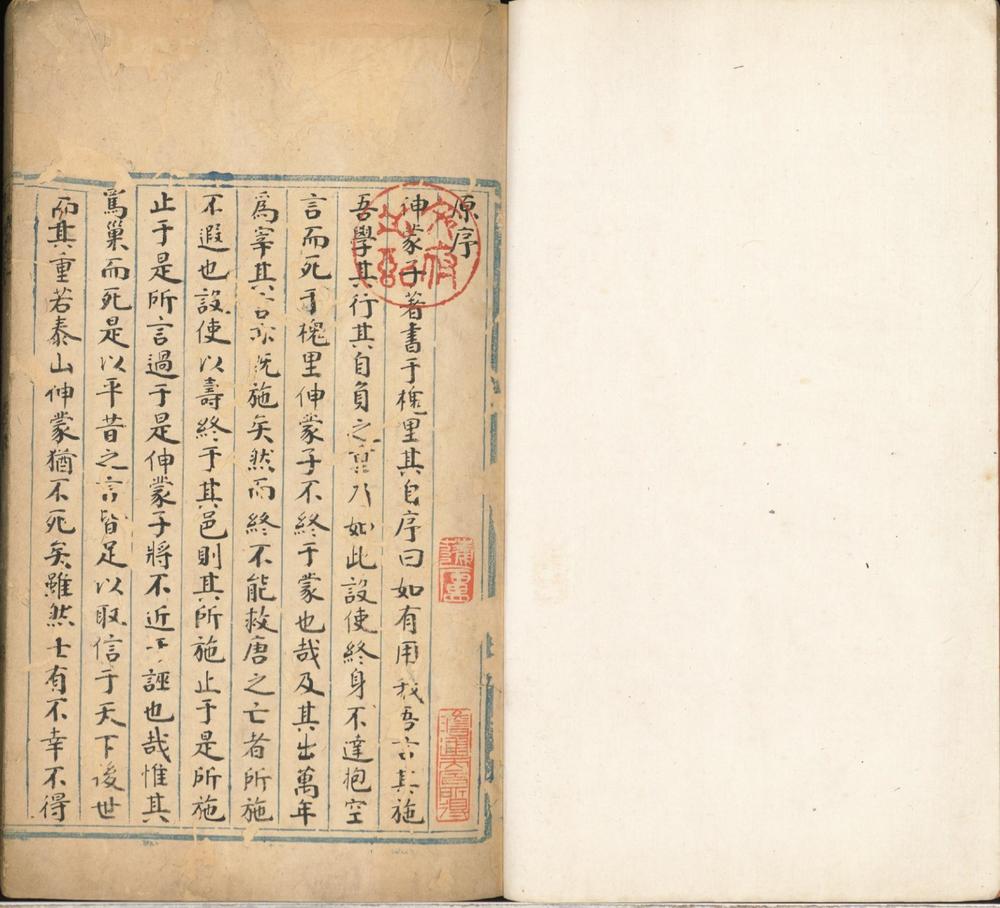 原序
伸蒙子著書于槐里其自序曰如有用我吾言其施
吾學其行其自負之重乃如此設使終身不達抱空
言而死于槐里伸蒙子不終于蒙也哉及其出萬年
為宰其言亦既施矣然而終不能救唐之亡者所施
不遐也設使以壽終于其邑則其所施止于是所施
止于是所言過于是伸蒙子將不近于誣也哉惟其
罵巢而死是以平昔之言皆足以取信于天下後世
而其重若泰山伸蒙猶不死矣雖然士有不幸不得